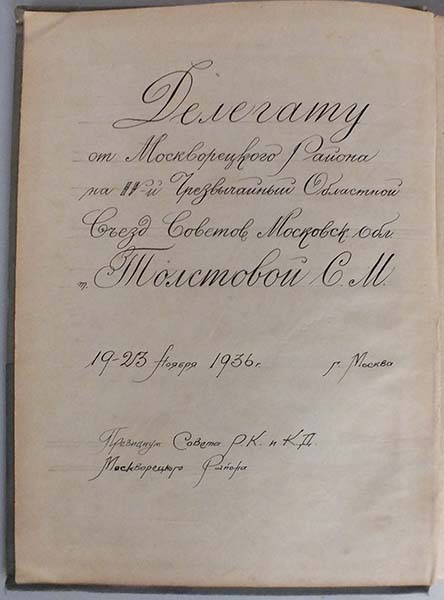 Делегату
от Москворецкого Района
на IV-й Чрезвычайный Областной
Съезд Советов Московск. Обл.
т. Толстовой С. М.
19-23 Ноября 1936 г. г. Москва
Президиум Совета Р.К. и К.Д.
Москворецкого Района